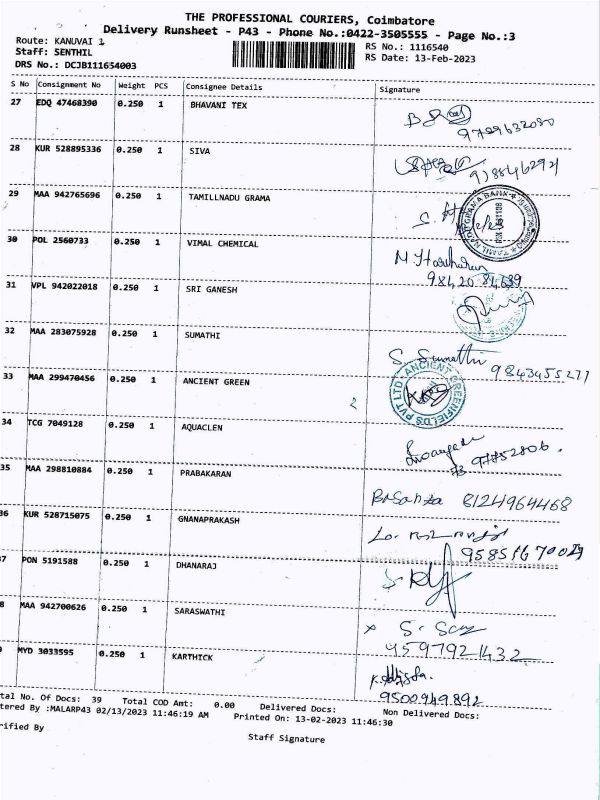 THE PROFESSIONAL COURIERS, Coimbatore
Delivery Runsheet - P43 - Phone No.:0422-3505555 - Page No.:3
Route: KANUVAI 1
Staff: SENTHIL
DRS No.: DCJB111654003
RS No.: 1116540
RS Date: 13-Feb-2023
S No Consignment No Weight PCS Consignee Details Signature
27 EDQ 47468390 0.250 1 BHAVANI TEX
28 KUR 528895336 0.250 1 SIVA
29 MAA 942765696 0.250 1 TAMILLNADU GRAMA
30 POL 2560733 0.250 1 VIMAL CHEMICAL
31 VPL 942022018 0.250 1 SRI GANESH
32 MAA 283075928 0.250 1 SUMATHI
S. Sumathi
33 MAA 299470456 0.250 1 ANCIENT GREEN
ANCIENT GREENFIELDS PVT LTD
34 TCG 7049128 0.250 1 AQUACLEN
35 MAA 298810884 0.250 1 PRABAKARAN
8124964468
36 KUR 528715075 0.250 1 GNANAPRAKASH
37 PON 5191588 0.250 1 DHANARAJ
8 MAA 942700626 0.250 1 SARASWATHI
9597921432
MYD 3033595 0.250 1 KARTHICK
9500949892
tal No. Of Docs: 39 Total COD Amt: 0.00 Delivered Docs: Non Delivered Docs:
tered By :MALARP43 02/13/2023 11:46:19 AM Printed On: 13-02-2023 11:46:30
rified By
Staff Signature